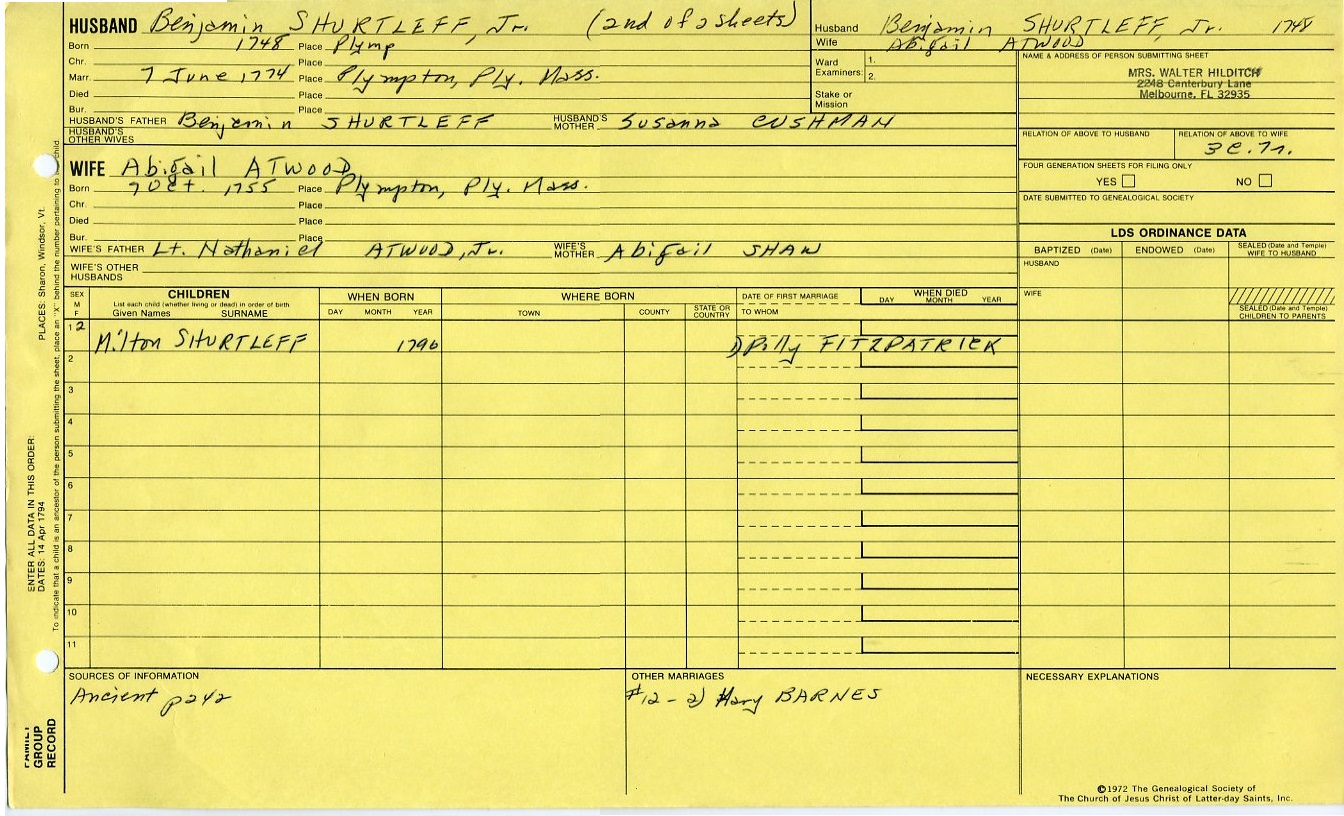 HUSBAND Benjamin SHURTLEFF, Jr. (2nd of 2 sheets)
Born 1748 Place Plymp
Chr. Place
Marr. 7 June 1774 Place Plympton, Ply. Mass.
Died Place
Bur. Place
HUSBAND'S FATHER Benjamin SHURTLEFF HUSBAND'S MOTHER Susanna CUSHMAN
HUSBAND'S OTHER WIVES
WIFE Abigail ATWOOD
Born 7 Oct. 1755 Place Plympton, Ply. Mass.
Chr. Place
Died Place
Bur. Place
WIFE'S FATHER Lt. Nathaniel ATWOOD, Jr. WIFE'S MOTHER Abigail SHAW
WIFE'S OTHER HUSBANDS
Husband Benjamin SHURTLEFF, Jr. 1748
Wife Abigail ATWOOD
Ward 1.
Examiners: 2.
Stake or
Mission
NAME & ADDRESS OF PERSON SUBMITTING SHEET
MRS. WALTER HILDITCH
2248 Canterbury Lane
Melbourne, FL 32935
RELATION OF ABOVE TO HUSBAND RELATION OF ABOVE TO WIFE
3C.7r.
FOUR GENERATION SHEETS FOR FILING ONLY
YES NO
DATE SUBMITTED TO GENEALOGICAL SOCIETY
LDS ORDINANCE DATA
BAPTIZED (Date) ENDOWED (Date) SEALED (Date and Temple) WIFE TO HUSBAND
HUSBAND
WIFE
SEALED (Date and Temple) CHILDREN TO PARENTS
SEX M F
CHILDREN
List each child (whether living or dead) in order of birth
Given Names SURNAME
WHEN BORN
DAY MONTH YEAR
WHERE BORN
TOWN COUNTY STATE OR COUNTRY
DATE OF FIRST MARRIAGE
TO WHOM
WHEN DIED
DAY MONTH YEAR
12
Milton SHURTLEFF 1796 1) Polly FITZPATRICK
2
3
4
5
6
7
8
9
10
11
SOURCES OF INFORMATION
Ancient p242
OTHER MARRIAGES
#12 - 2) Mary BARNES
NECESSARY EXPLANATIONS
©1972 The Genealogical Society of
The Church of Jesus Christ of Latter-day Saints, Inc.
ENTER ALL DATA IN THIS ORDER:
DATES: 14 Apr 1794 PLACES: Sharon, Windsor, Vt.
To indicate that a child is an ancestor of the person submitting the sheet, place an "X" behind the number pertaining to child
FAMILY
GROUP
RECORD